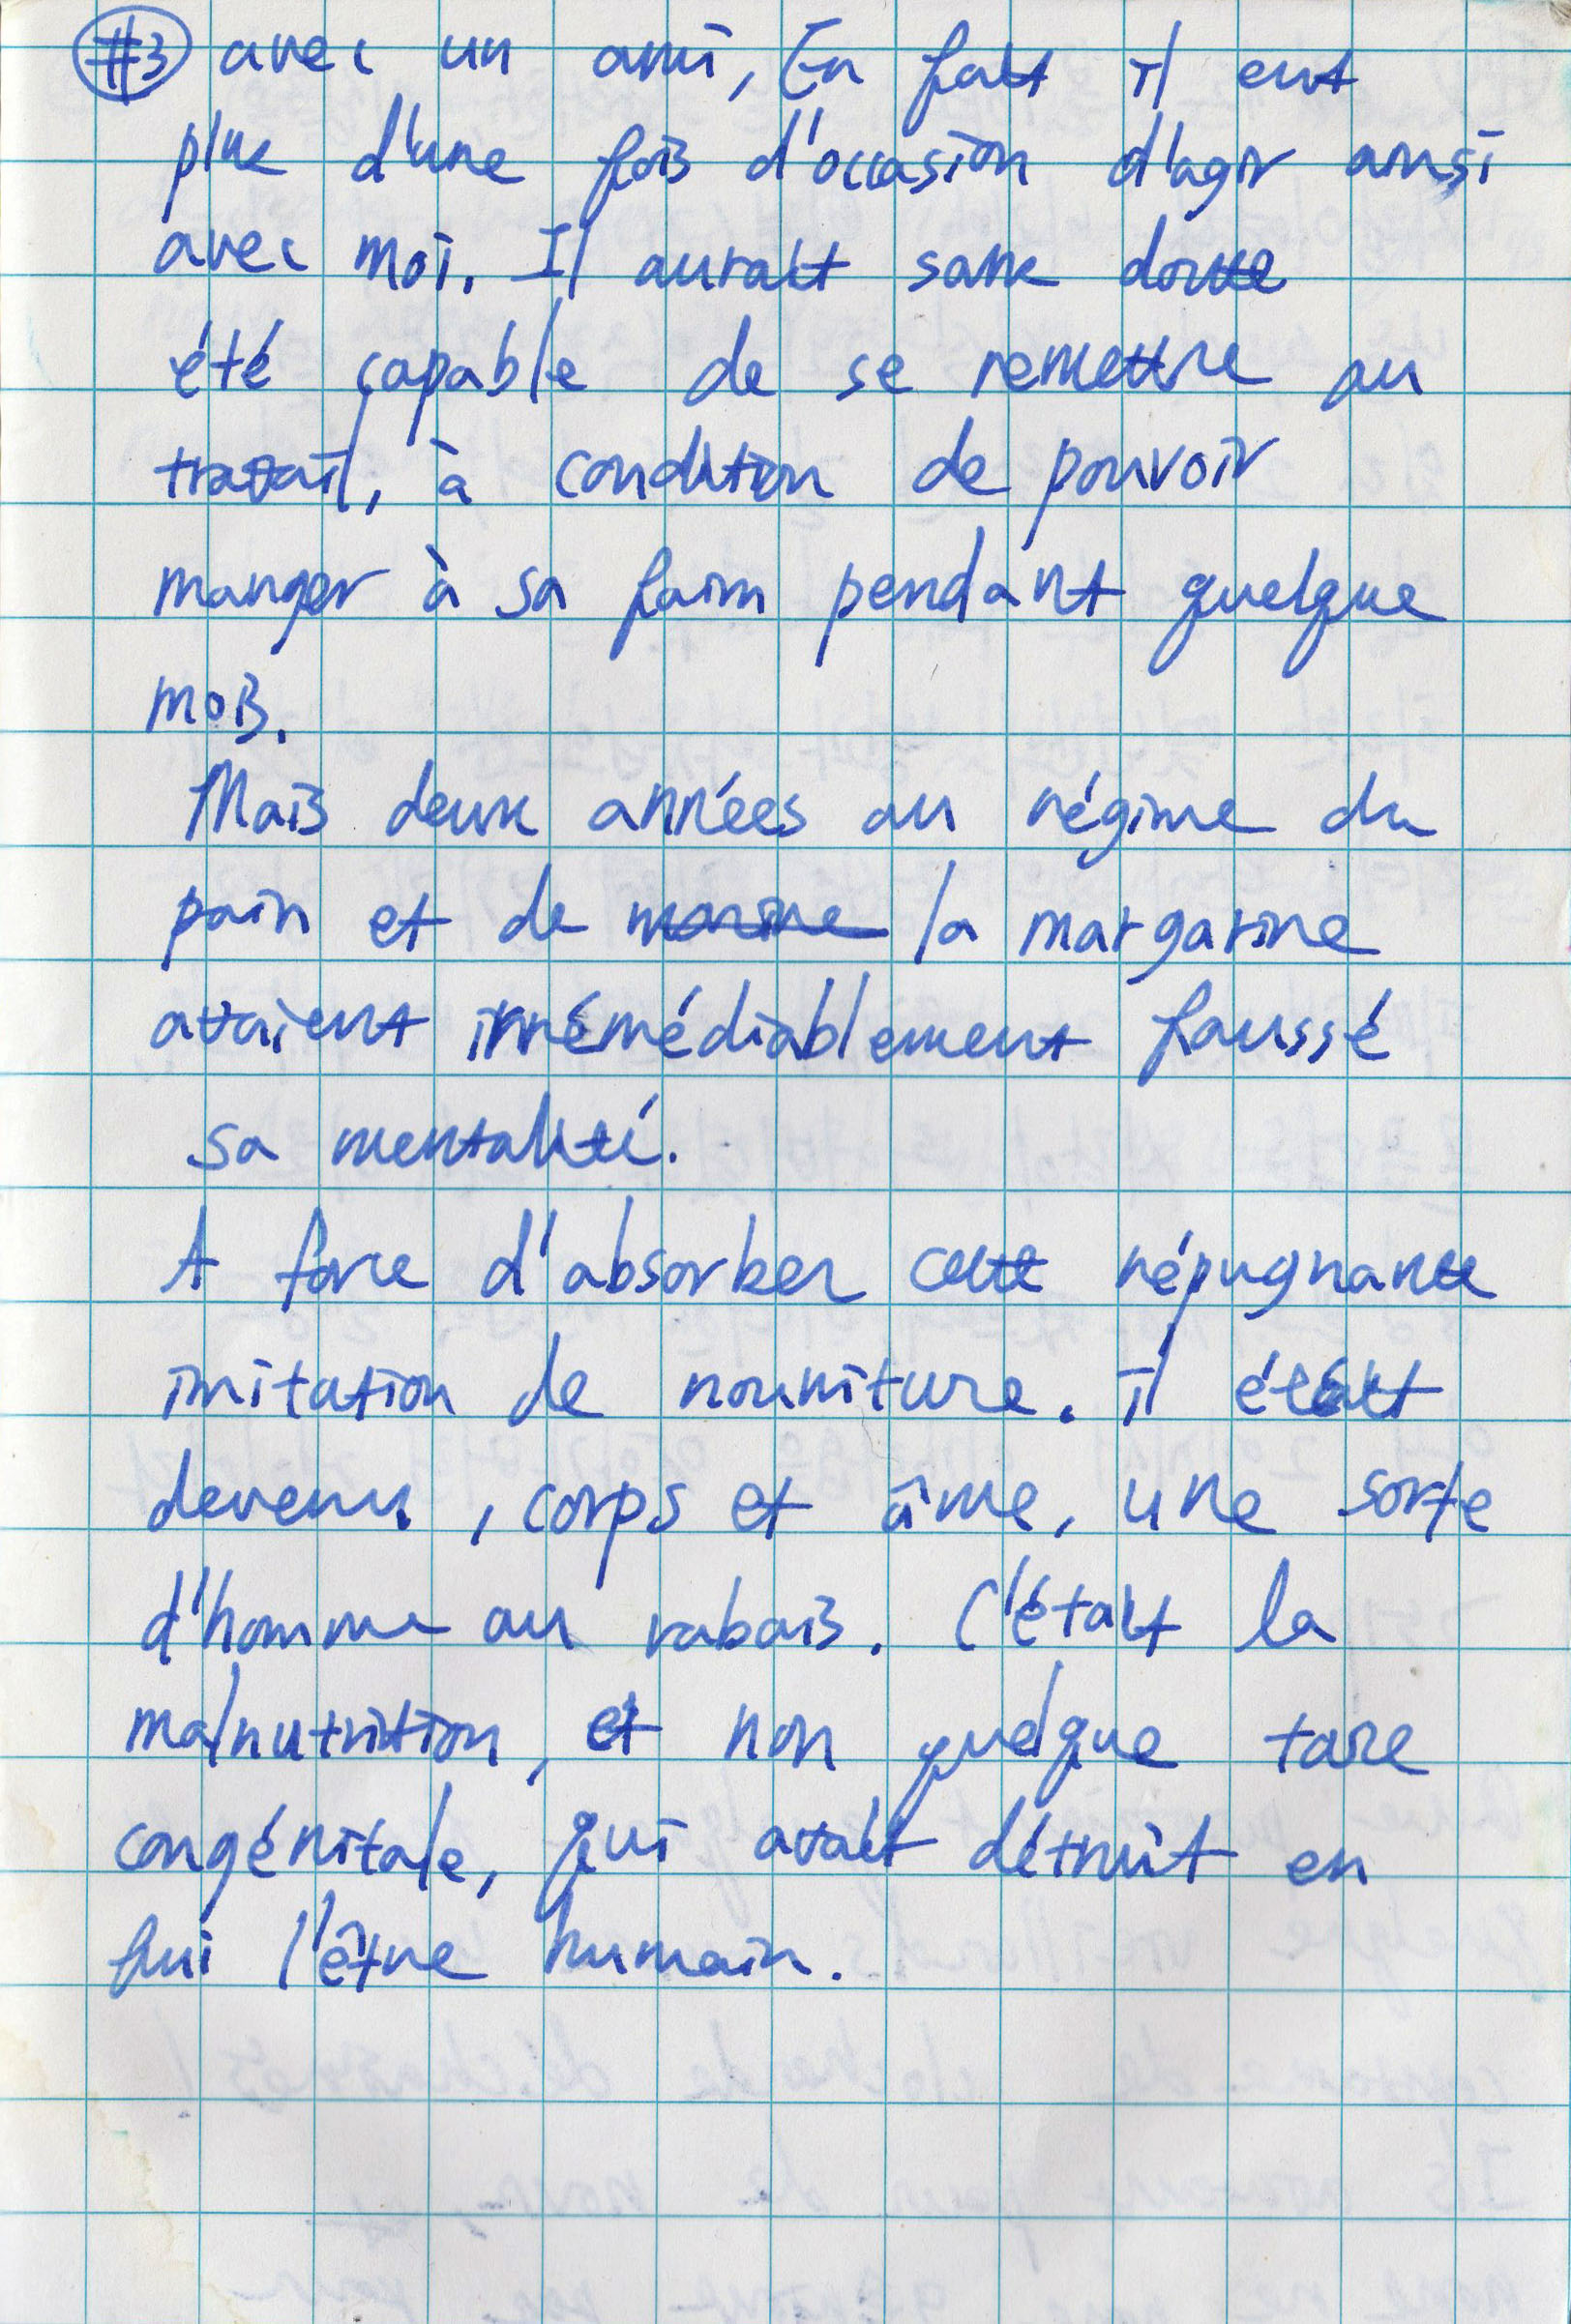 #3 avec un ami, En fait il eut
plus d'une fois d'occasion d'agir ainsi
avec moi. Il aurait sans doute
été capable de se remettre au
travail, à condition de pouvoir
manger à sa faim pendant quelque
mois.
Mais deux années au régime du
pain et de la margarine
avaient irrémédiablement faussé
sa mentalité.
A force d'absorber cette répugnante
imitation de nourriture. il était
devenu, corps et âme, une sorte
d'homme au rabais. C'était la
malnutrition, et non quelque tare
congénitale, qui avait détruit en
lui l'être humain.